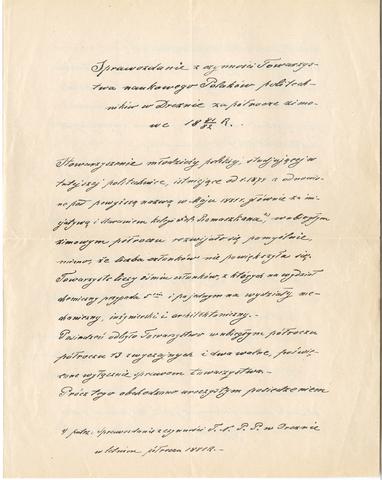 Sprawozdanie z czynności Towarzys-
twa naukowego Polaków politech-
ników w Dreznie za półrocze zimo-
we 18 81/82 R.
Stowarzyszenie młodzieży polskiej, studjującej w
tutejszej politechnice, istniejące od r. 187 a odnowio-
ne pod powyższą nazwą w Maju 1881, głównie za ini-
cjatywą i staraniem kolegi w ubiegłym
zimowym półroczu rozwijało się pomyślnie,
mimo, że liczba członków nie powiększyła się.
Towarzystwo liczy ośmiu członków, z których na wydział
chemiczny przypada 5ciu i po jednym na wydziały me-
chaniczny, inżynierski i architektoniczny.
Posiedzeń odbyło Towarzystwo w ubiegłym półroczu
półroczu 13 zwyczajnych i dwa walne, poświę-
cone wyłącznie sprawom towarzystwa.
Prócz tego obchodzono uroczystym posiedzeniem
patrz. Sprawozdanie z czynności T. N. P. P. w Dreznie
w letniem półroczu 1881 R. -